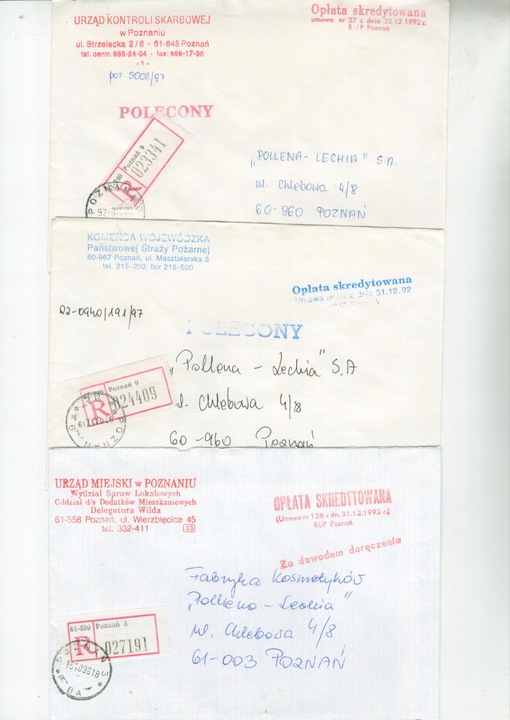 URZĄD KONTROLI SKARBOWEJ
w Poznaniu
ul. Strzelecka 2/6 - 61-845 Poznań
tel. centr. 888-24-04 - fax 858-17-36
- 1 -
Opłata skredytowana
umowa nr 27 z dnia 22.12.1992 r.
RUP Poznań
poz 5008/97
POLECONY
Poznań 9
R
023341
POZNAŃ
„POLLENA-LECHIA" S.A.
ul. Chlebowa 4/8
60-960 POZNAŃ
KOMENDA WOJEWÓDZKA
Państwowej Straży Pożarnej
60-967 Poznań, ul. Masztalarska 3
tel. 215-200, fax 215-500
Opłata skredytowana
Umowa z dnia 31.12.92
RUP
RZ-0940/191/97
POLECONY
Poznań 9
R
024409
POZNAŃ
„Pollena - Lechia" S.A
ul. Chlebowa 4/8
60-960 Poznań
URZĄD MIEJSKI w POZNANIU
Wydział Spraw Lokalowych
Oddział d/s Dodatków Mieszkaniowych
Delegatura Wilda
61-558 Poznań, ul. Wierzbięcice 45
tel. 332-411 (33)
OPŁATA SKREDYTOWANA
(Umowa nr 126 z dn. 31.12.1992 r.)
RUP Poznań
Za dowodem doręczenia
Fabryka Kosmetyków
„Pollena-Lechia"
ul. Chlebowa 4/8
61-003 POZNAŃ
61-550 Poznań 5
R
027191